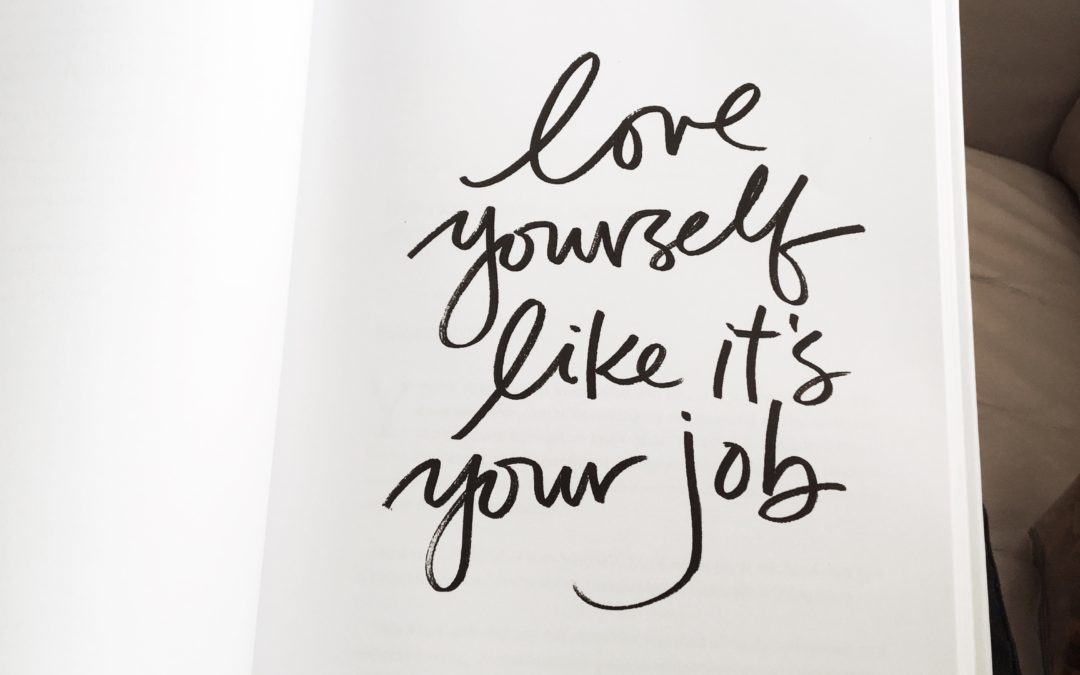 love
yourself
like it's
your job